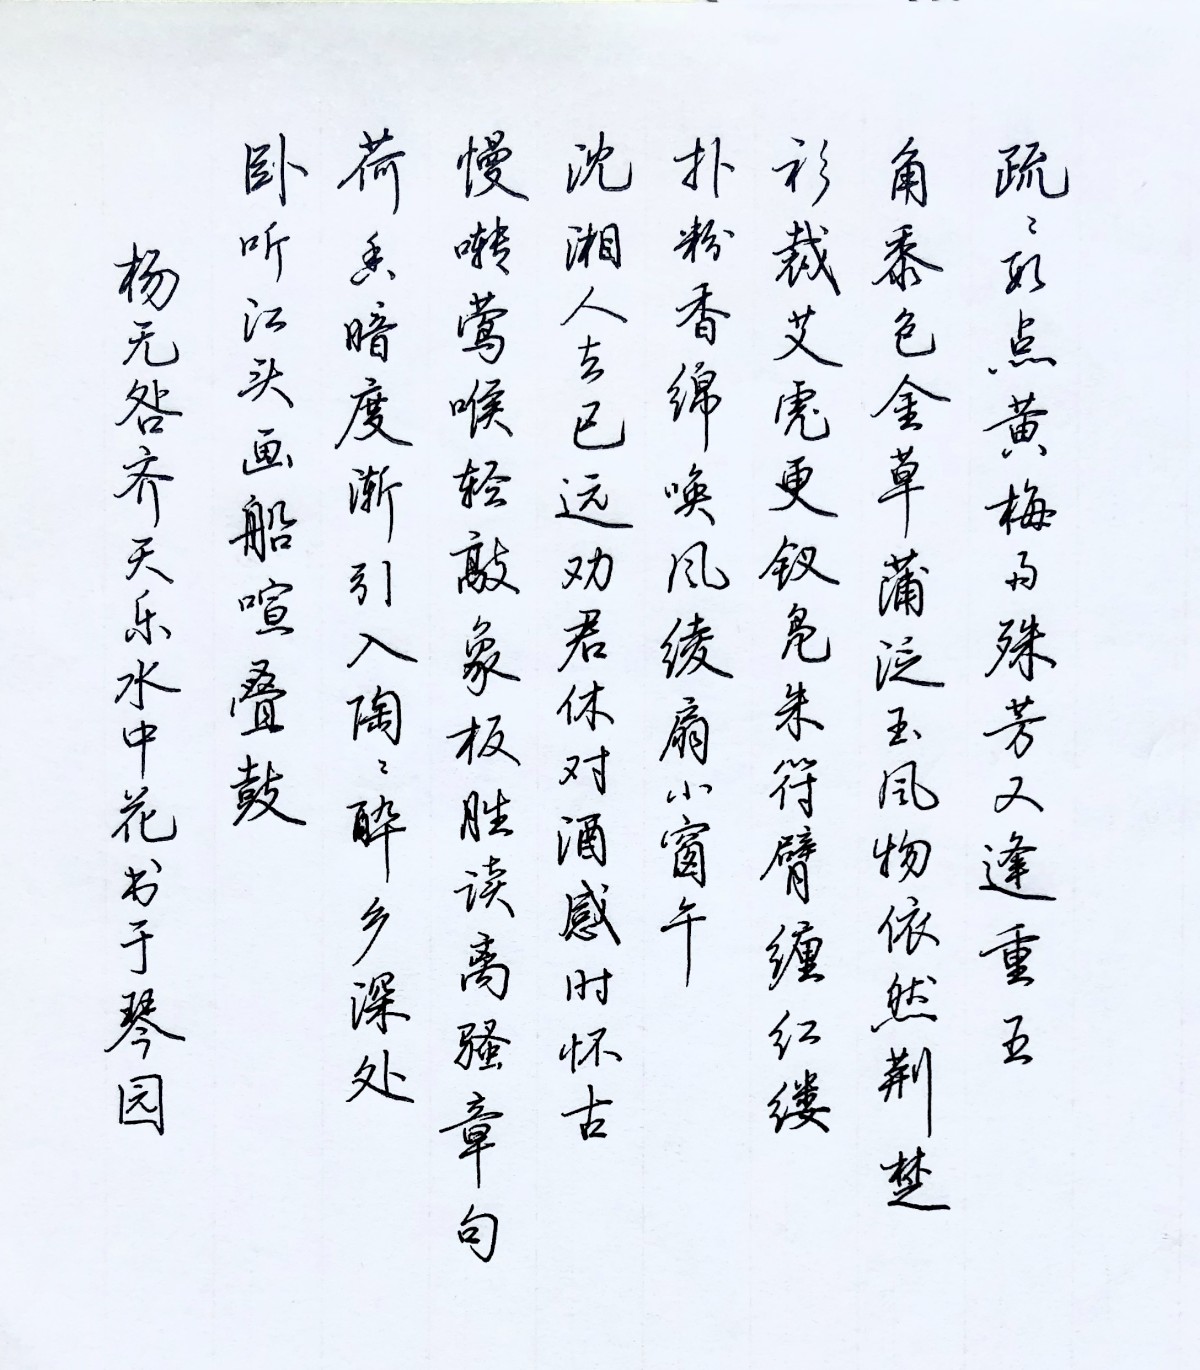 疏ミ数点黄梅雨殊芳又逢重五
角黍包金草蒲泛玉风物依然荆楚
衫裁艾虎更钗凫朱符臂缠红缕
扑粉香绵唤风绫扇小窗午
沈湘人去已远劝君休对酒感时怀古
慢啭莺喉轻敲象板胜读离骚章句
荷香暗度渐引入陶ミ醉乡深处
卧听江头画船喧叠鼓
杨无咎齐天乐水中花书于琴园